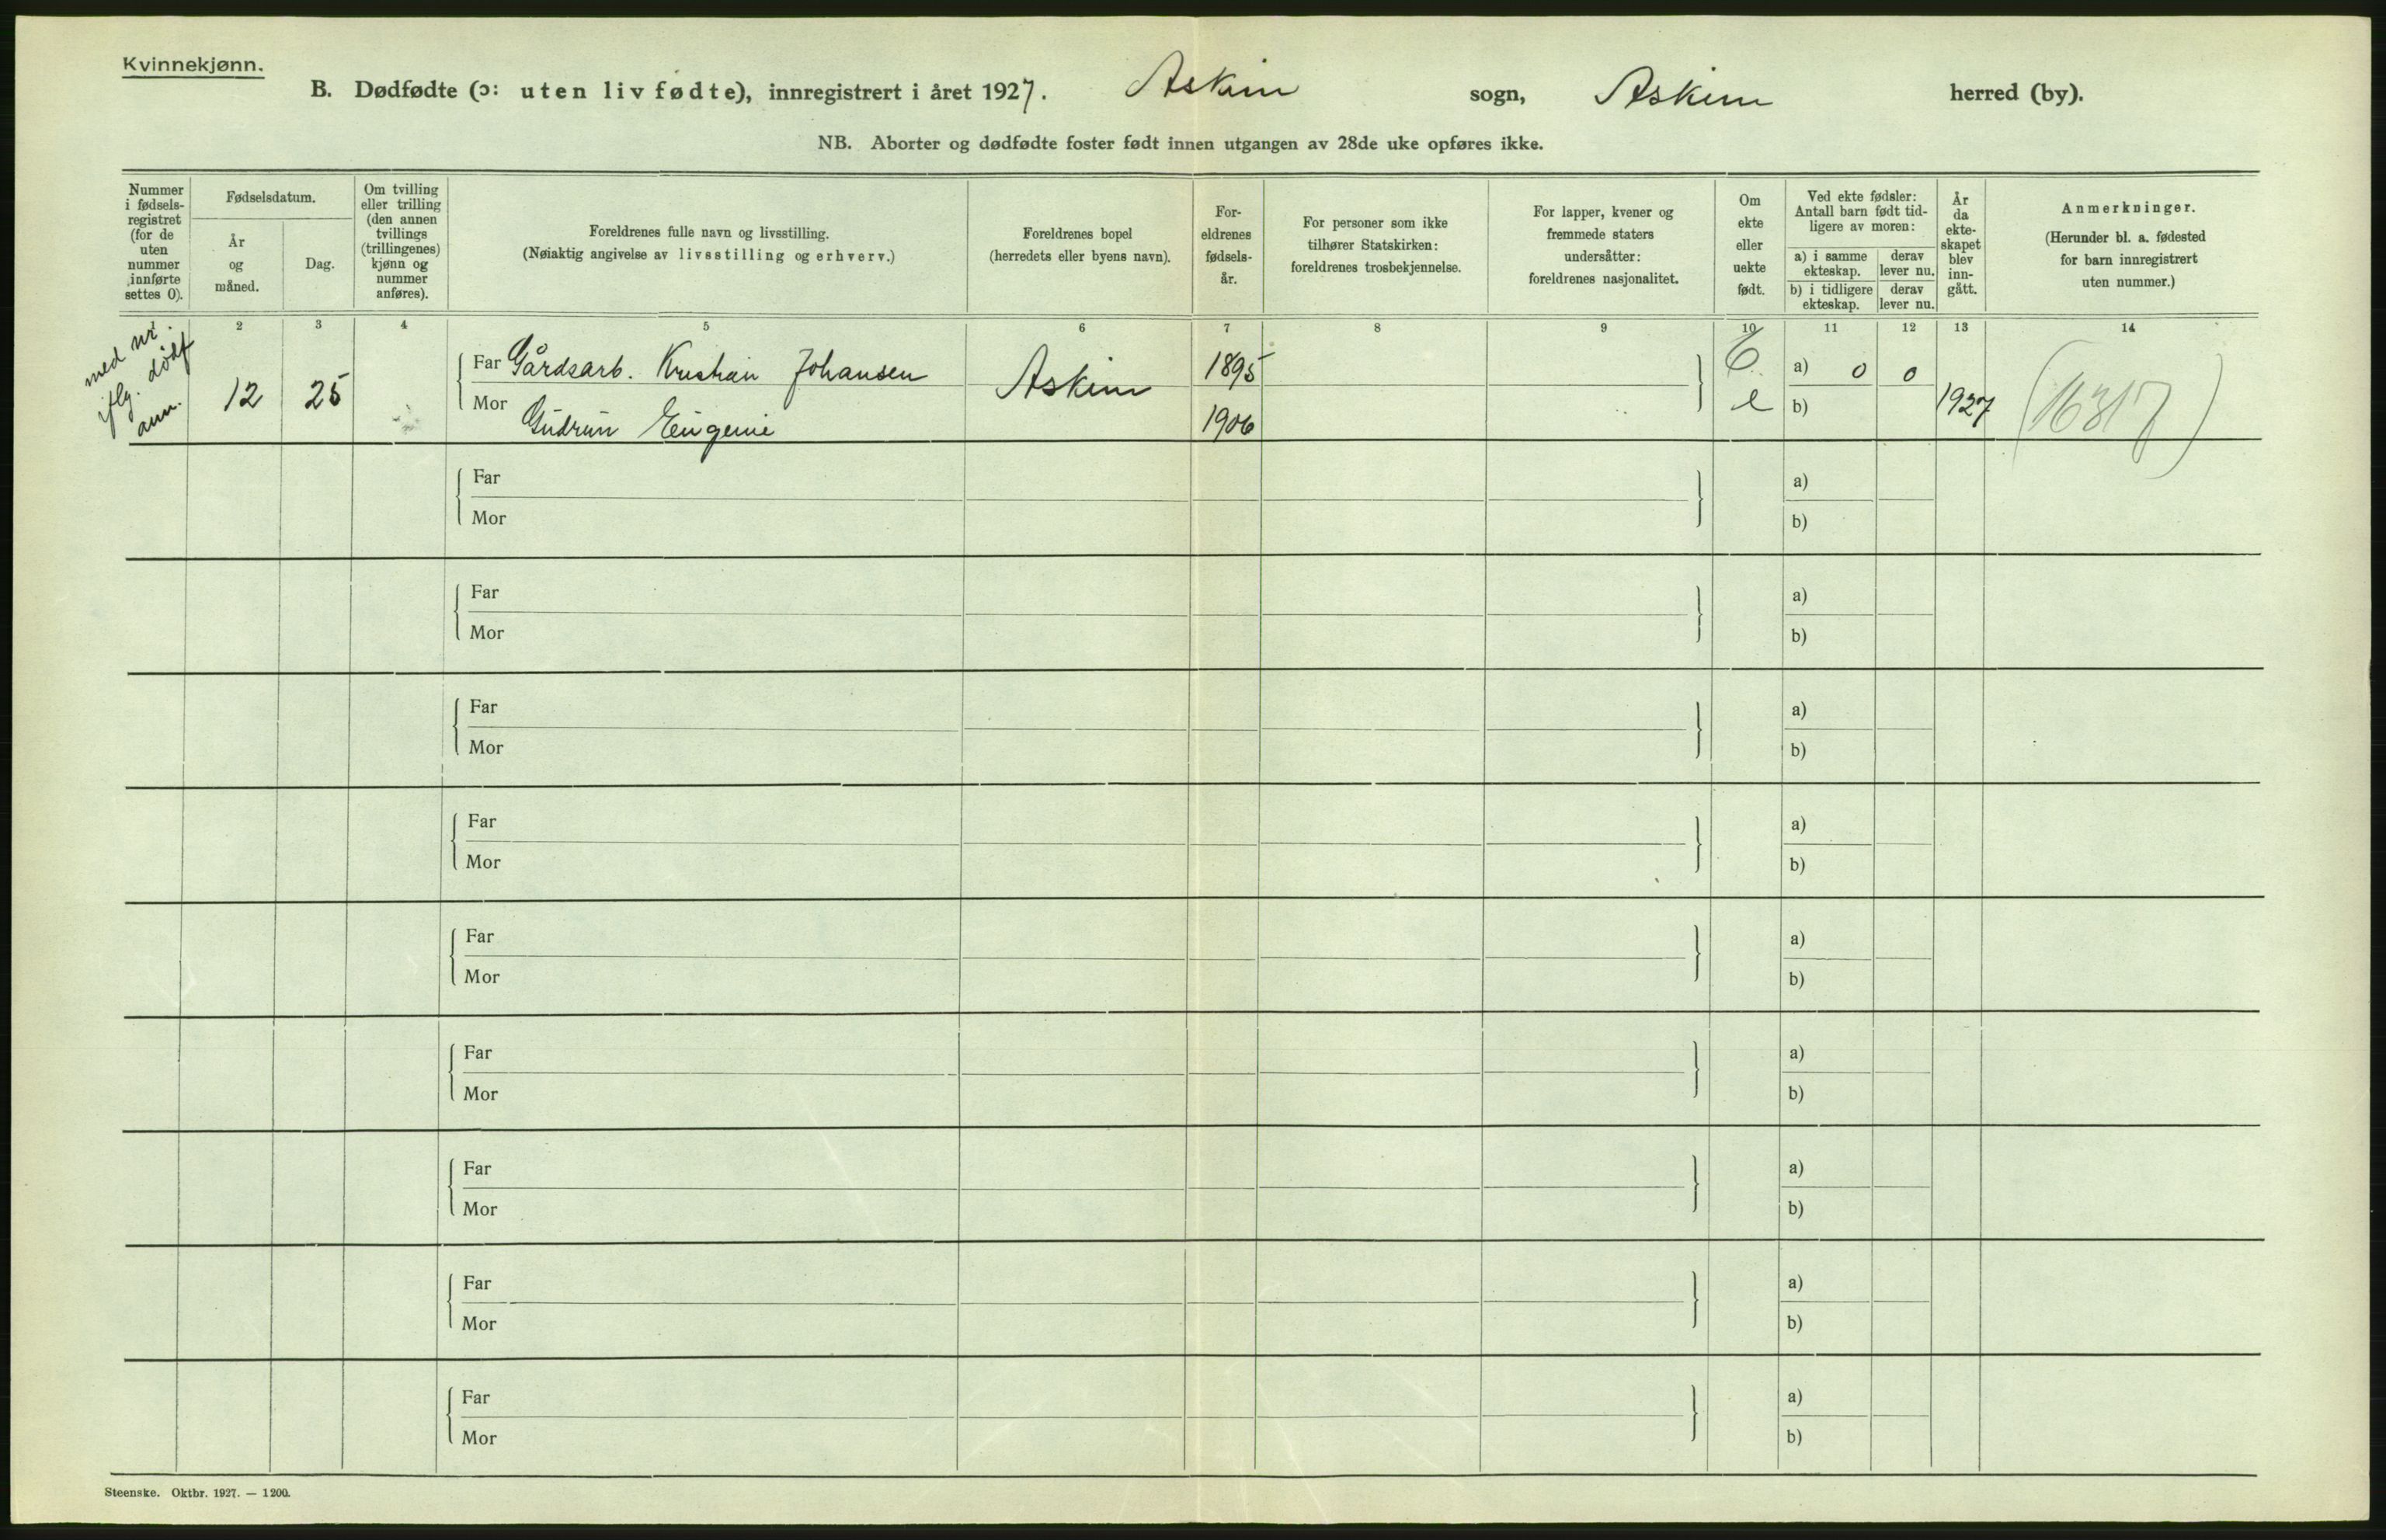 Kvinnekjønn.
B. Dødfødte (ɔ: uten liv fødte), innregistrert i året 1927. Askim sogn, Askim herred (by).
NB. Aborter og dødfødte foster født innen utgangen av 28de uke opføres ikke.
Nummer
i fødsels-
registret
(for de
uten
nummer
innførte
settes 0).
Fødselsdatum.
År
og
måned.
Dag.
Om tvilling
eller trilling
(den annen
tvillings
(trillingenes)
kjønn og
nummer
anføres).
Foreldrenes fulle navn og livsstilling.
(Nøiaktig angivelse av livsstilling og erhverv.)
Foreldrenes bopel
(herredets eller byens navn).
For-
eldrenes
fødsels-
år.
For personer som ikke
tilhører Statskirken:
foreldrenes trosbekjennelse.
For lapper, kvener og
fremmede staters
undersåtter:
foreldrenes nasjonalitet.
Om
ekte
eller
uekte
født.
Ved ekte fødsler:
Antall barn født tid-
ligere av moren:
a) i samme
ekteskap.
derav
lever nu.
b) i tidligere
ekteskap.
derav
lever nu.
År
da
ekte-
skapet
blev
inn-
gått.
Anmerkninger.
(Herunder bl. a. fødested
for barn innregistrert
uten nummer.)
1 2 3 4 5 6 7 8 9 10 11 12 13 14
med nr.
iflg. dødf
anm.
12 25
Far Gårdsarb. Kristian Johansen
Mor Gudrun Eugenie
Askim
1895
1906
E
e
a) 0 0
b)
1927
(16317)
Far a)
Mor b)
Far a)
Mor b)
Far a)
Mor b)
Far a)
Mor b)
Far a)
Mor b)
Far a)
Mor b)
Far a)
Mor b)
Far a)
Mor b)
Far a)
Mor b)
Steenske. Oktbr. 1927. — 1200.